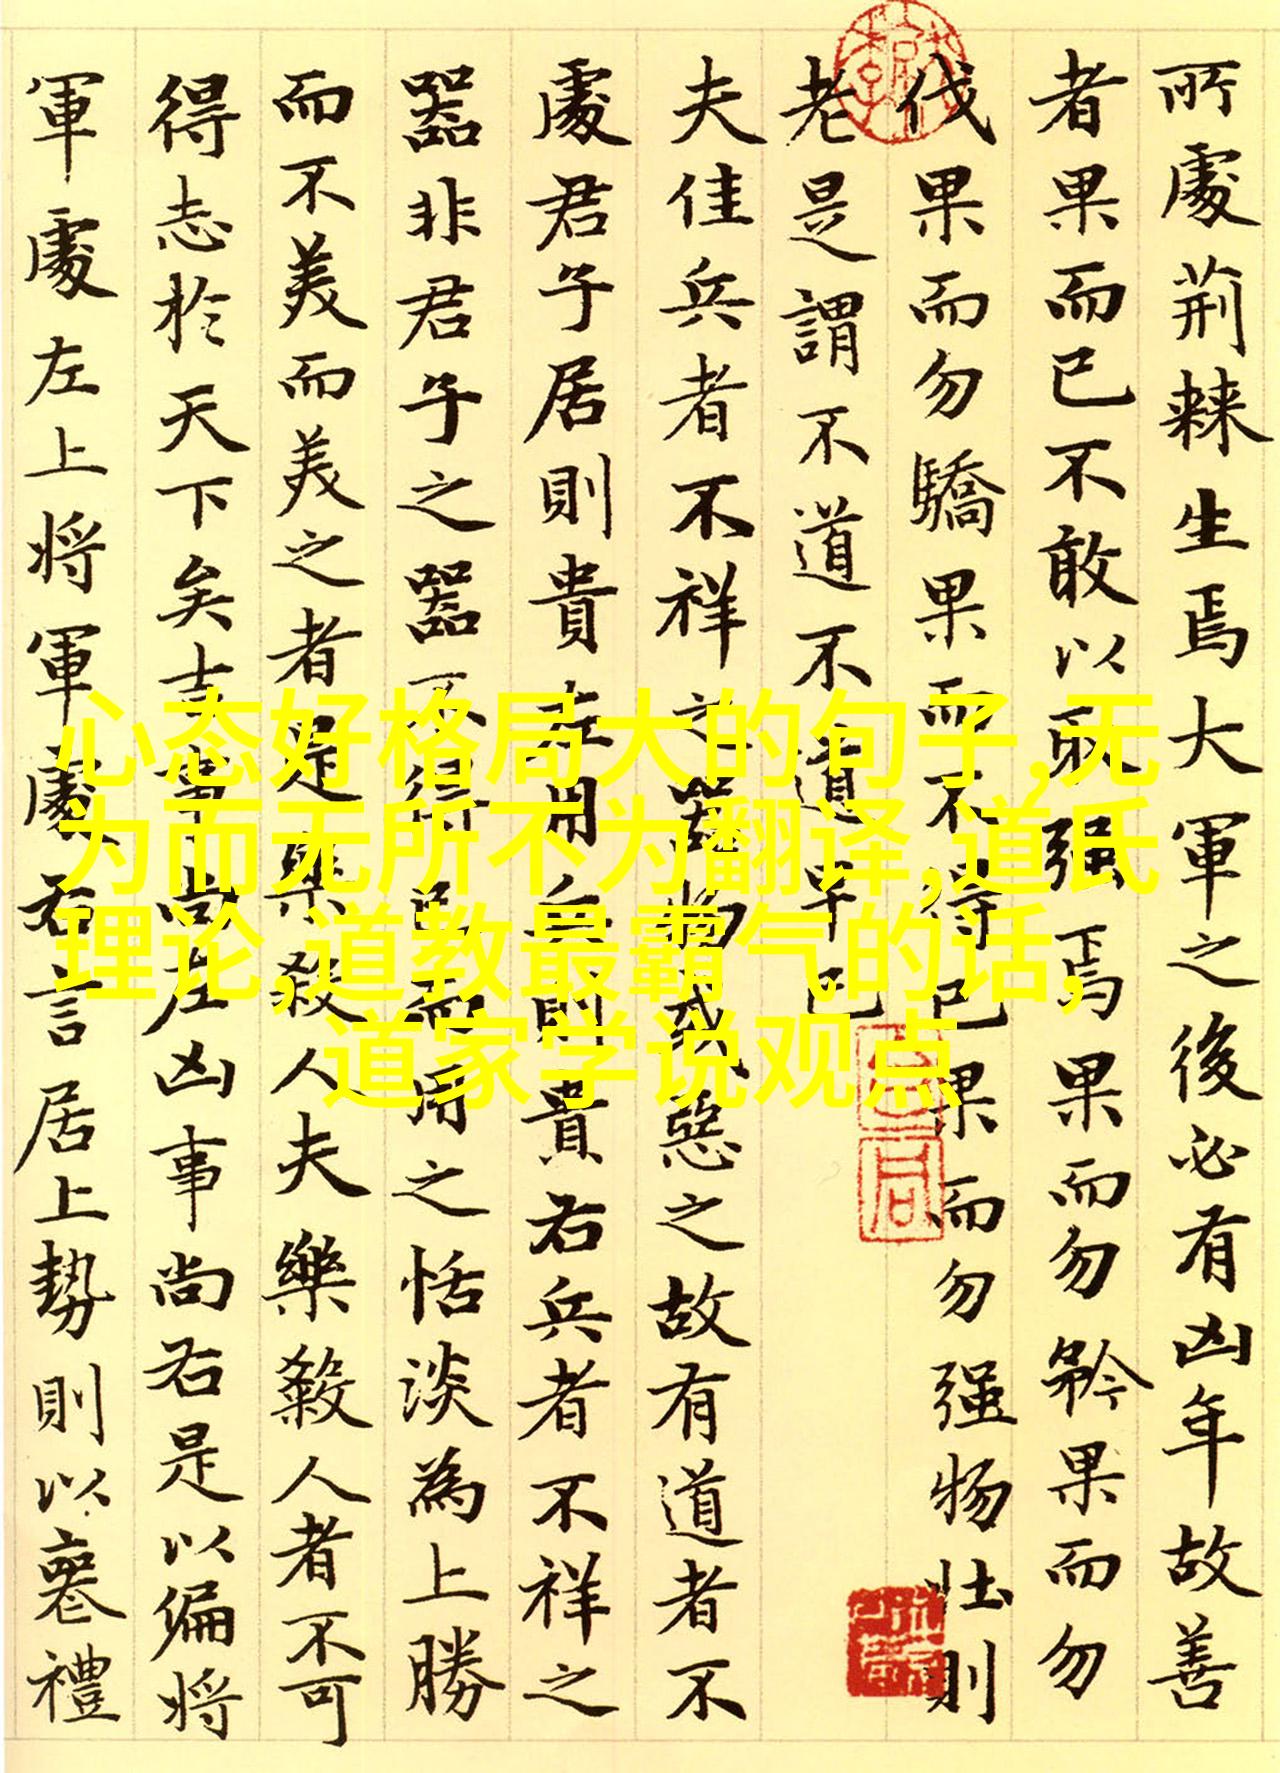 所處荊棘生焉大軍之後必有凶年故善
者果而已不敢以取强焉果而勿矜果而勿
伐果而勿驕果而不得已果而勿强物壯則
老是謂不道不道早已
夫佳兵者不祥之器物或惡之故有道者不
處君子居則貴左用兵則貴右兵者不祥之
器非君子之器不得已而用之恬淡為上勝
而不美而美之者是樂殺人夫樂殺人者不可
得志於天下矣吉事尚左凶事尚右是以偏將
軍處左上將軍處右言居上勢則以喪禮
心态好格局大的句子,无
为而无所不为翻译,道氏
理论,道教最霸气的话,
道家学说观点